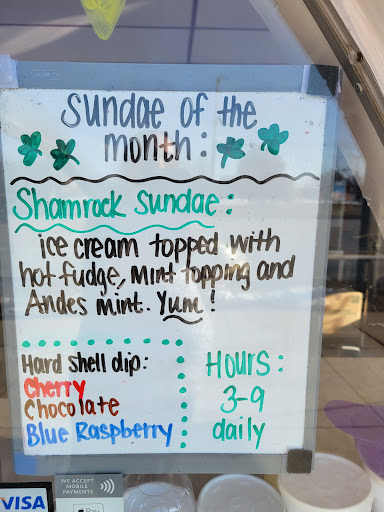 Sundae of the
month:
Shamrock Sundae:
ice cream topped with
hot fudge, mint topping and
Andes mint. Yum!
Hard shell dip:
Cherry
Chocolate
Blue Raspberry
Hours:
3-9
daily
WE ACCEPT
MOBILE
PAYMENTS
VISA
Pay